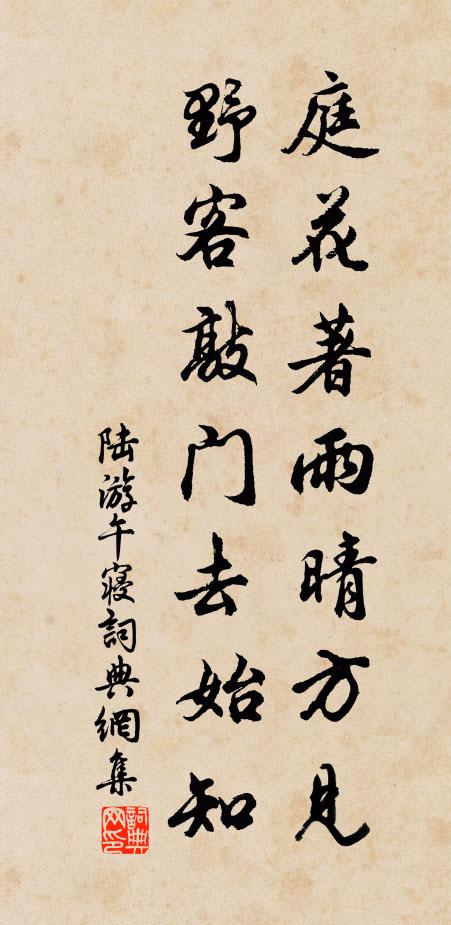 庭花著雨晴方见
野客敲门去始知
陆游午寝词典網集
詞典网印